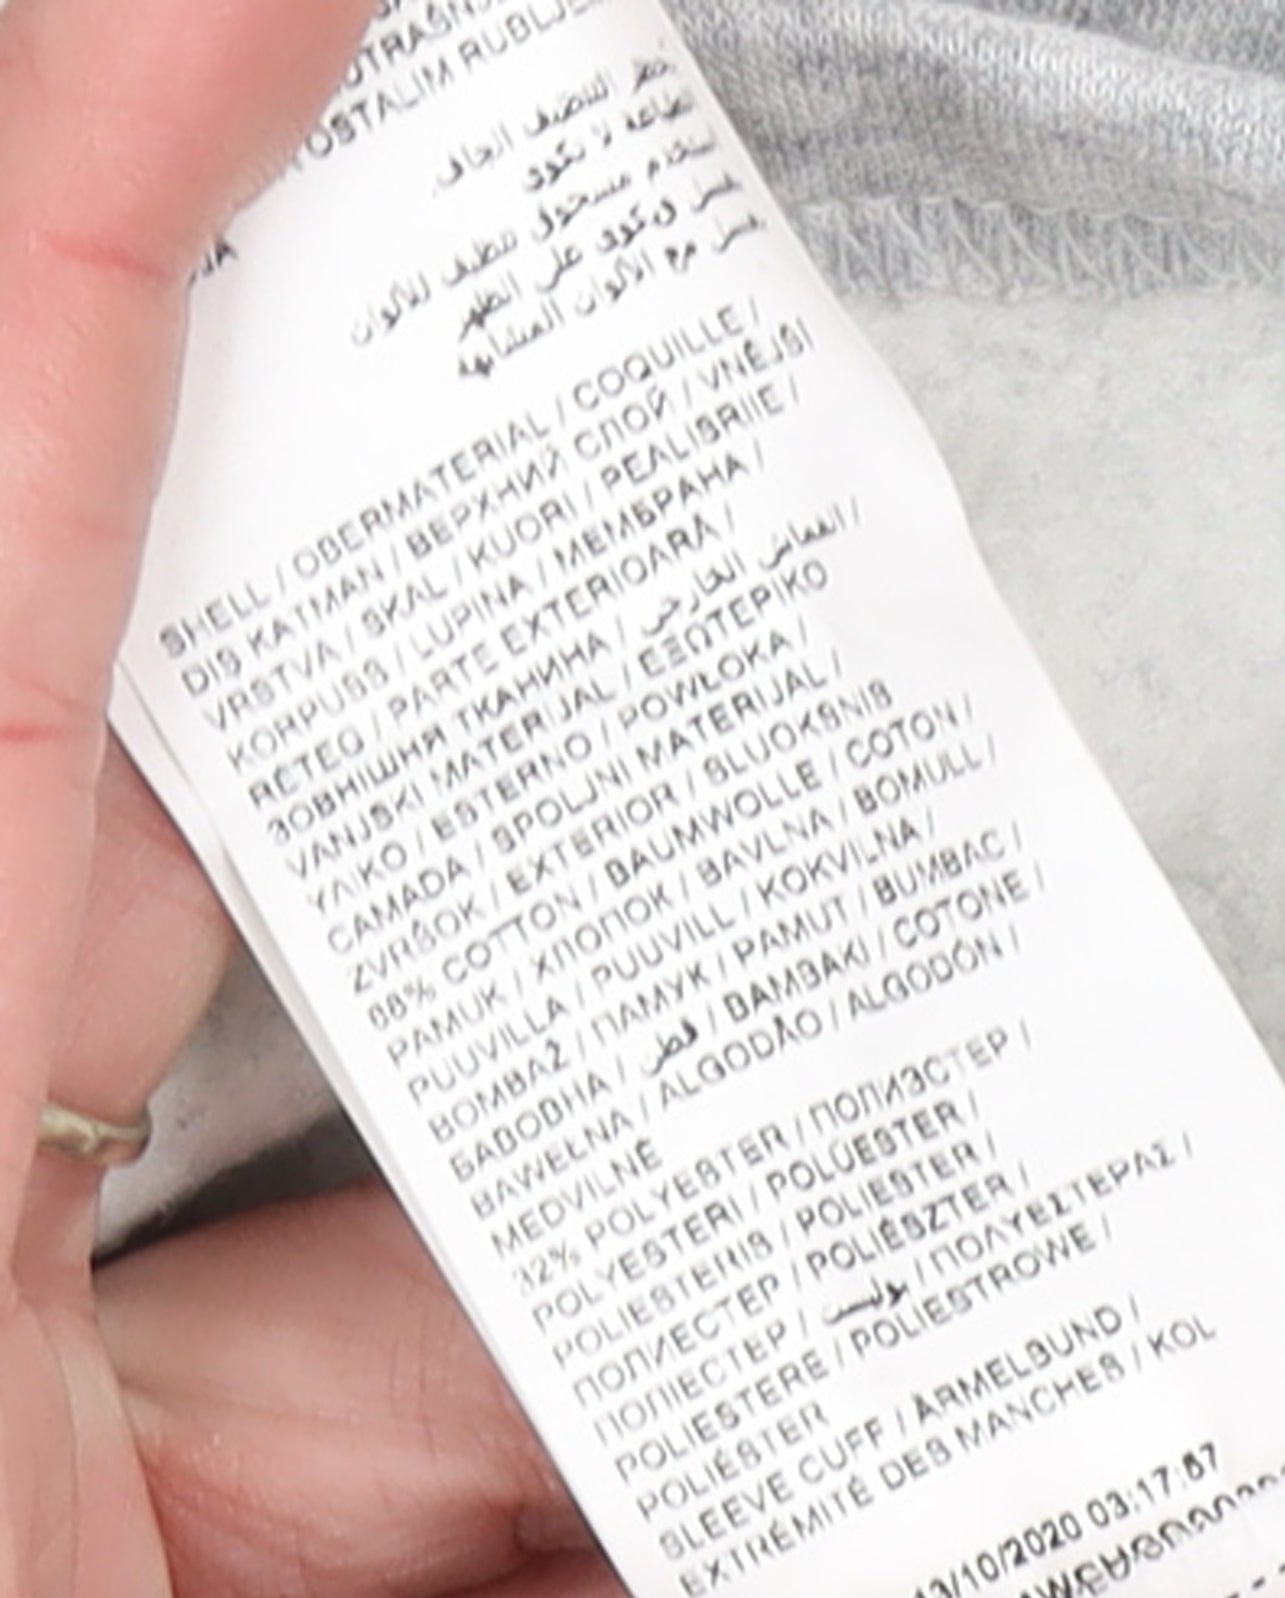 OSTALIM RUBLJE
للتنظيف الجاف
لا تكوى
مسحوق تنظيف للألوان
على الظهر
مع الألوان المشابهة
SHELL / OBERMATERIAL / COQUILLE /
DIŞ KATMAN / ВЕРХНИЙ СЛОЙ / VNĚJŠÍ
VRSTVA / SKAL / KUORI / PEALISRIIE /
KORPUSS / LUPINA / МЕМБРАНА /
RÉTEG / PARTE EXTERIOARĂ /
ЗОВНІШНЯ ТКАНИНА / القماش الخارجي /
VANJSKI MATERIJAL / ΕΞΩΤΕΡΙΚΟ
ΥΛΙΚΟ / ESTERNO / POWŁOKA /
CAMADA / SPOLJNI MATERIJAL /
ZVRŠOK / EXTERIOR / SLUOKSNIS
68% COTTON / BAUMWOLLE / COTON /
PAMUK / ХЛОПОК / BAVLNA / BOMULL /
PUUVILLA / PUUVILL / KOKVILNA /
BOMBAŽ / ПАМУК / PAMUT / BUMBAC /
БАВОВНА / قطن / ΒΑΜΒΑΚΙ / COTONE /
BAWEŁNA / ALGODÃO / ALGODÓN /
MEDVILNĖ
32% POLYESTER / ПОЛИЭСТЕР /
POLYESTERI / POLÜESTER /
POLIESTERIS / POLIESTER /
ПОЛИЕСТЕР / POLIÉSZTER /
ПОЛІЕСТЕР / بوليستر / ΠΟΛΥΕΣΤΕΡΑΣ /
POLIESTERE / POLIESTROWE /
POLIÉSTER
SLEEVE CUFF / ÄRMELBUND /
EXTRÉMITÉ DES MANCHES / KOL
13/10/2020 03:17:57